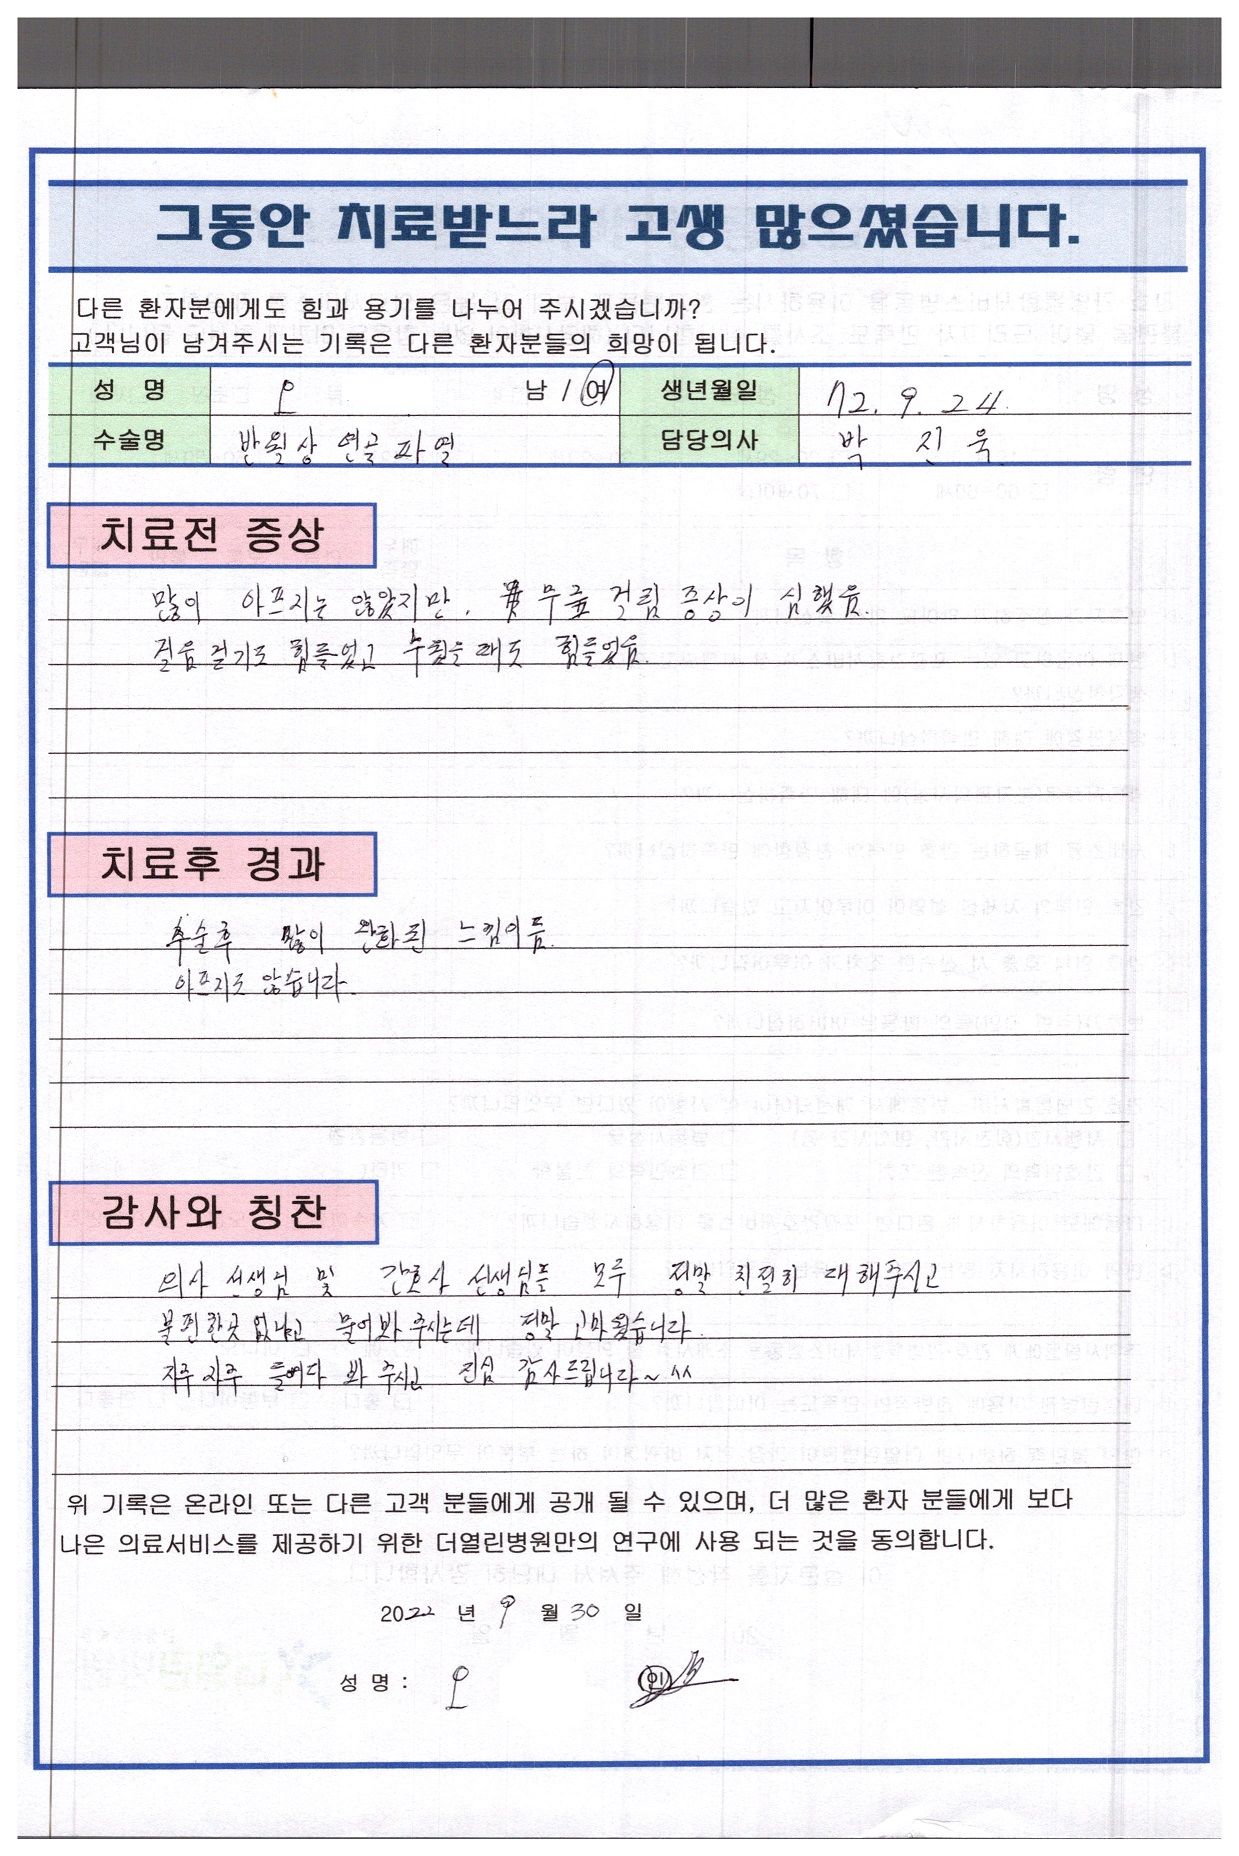 그동안 치료받느라 고생 많으셨습니다.
다른 환자분에게도 힘과 용기를 나누어 주시겠습니까?
고객님이 남겨주시는 기록은 다른 환자분들의 희망이 됩니다.
성 명 오 남 / 여 생년월일 72. 9. 24.
수술명 반월상 연골 파열 담당의사 박 진 욱
치료전 증상
많이 아프지는 않았지만, 무릎 걸림 증상이 심했음.
걸음 걷기도 힘들었고 누웠을때도 힘들었음.
치료후 경과
수술후 많이 완화된 느낌이듬.
아프지도 않습니다.
감사와 칭찬
의사 선생님 및 간호사 선생님들 모두 정말 친절히 대해주시고
불편한곳 없냐고 물어봐 주시는데 정말 고마웠습니다.
자주 자주 들여다 봐 주시고 진심 감사드립니다~ ^^
위 기록은 온라인 또는 다른 고객 분들에게 공개 될 수 있으며, 더 많은 환자 분들에게 보다
나은 의료서비스를 제공하기 위한 더열린병원만의 연구에 사용 되는 것을 동의합니다.
2022 년 9 월 30 일
성 명 : 오 인